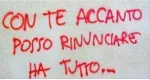 CON TE ACCANTO
POSSO RINUNCIARE
HA TUTTO...